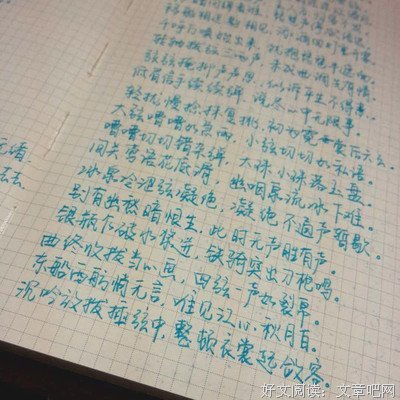 移船相近邀相见，添酒回灯重开宴。
千呼万唤始出来，犹抱琵琶半遮面。
转轴拨弦三两声，未成曲调先有情。
弦弦掩抑声声思，似诉平生不得志。
低眉信手续续弹，说尽心中无限事。
轻拢慢捻抹复挑，初为霓裳后六幺。
大弦嘈嘈如急雨，小弦切切如私语。
嘈嘈切切错杂弹，大珠小珠落玉盘。
间关莺语花底滑，幽咽泉流冰下难。
冰泉冷涩弦凝绝，凝绝不通声暂歇。
别有幽愁暗恨生，此时无声胜有声。
银瓶乍破水浆迸，铁骑突出刀枪鸣。
曲终收拨当心画，四弦一声如裂帛。
东船西舫悄无言，唯见江心秋月白。
沉吟放拨插弦中，整顿衣裳起敛容。
好文阅读：文章吧网